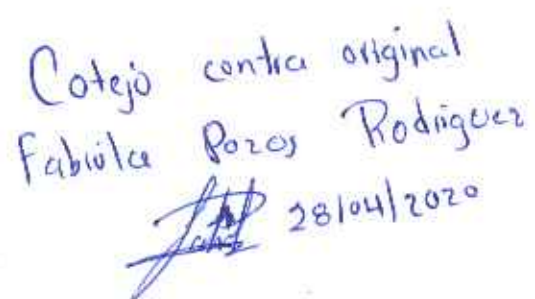 Cotejó contra original
Fabiola Pozos Rodríguez
28/04/2020